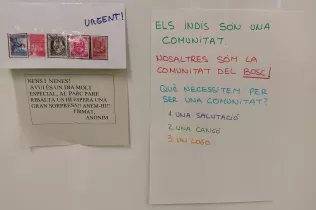 URGENT!
NENS I NENES!
AVUI ÉS UN DIA MOLT
ESPECIAL, AL PARC PARE
RISALTA US HI ESPERA UNA
GRAN SORPRESA!! ANEM-HI!!
FIRMAT,
ANÒNIM
ELS INDIS SÓN UNA
COMUNITAT.
NOSALTRES SÓM LA
COMUNITAT DEL BOSC!
QUÈ NECESSITEM PER
SER UNA COMUNITAT?
1. UNA SALUTACIÓ
2. UNA CANÇÓ
3. UN LOGO